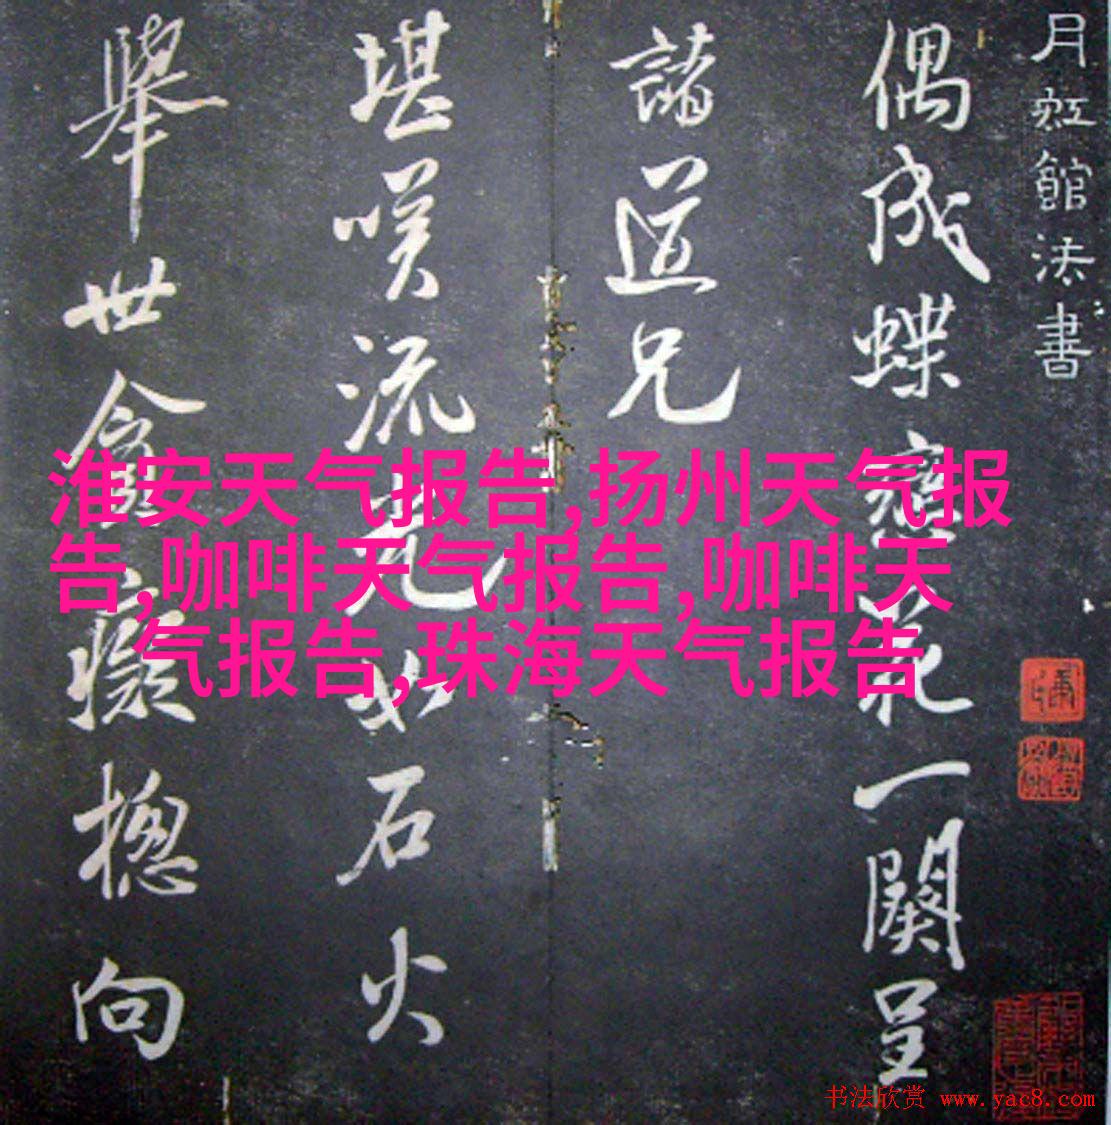 月虹館法書
偶成蝶戀花一闋呈
諸道兄
堪嘆流光如石火
舉世貪癡摠向
淮安天气报告,扬州天气报
告,咖啡天气报告,咖啡天
气报告,珠海天气报告
书法欣赏 www.yac8.com